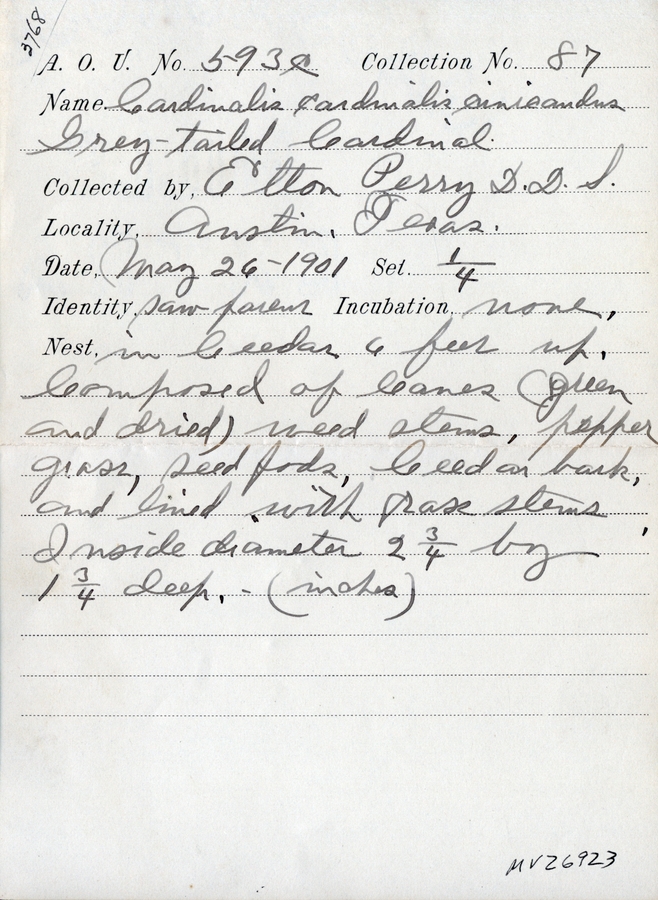 3768
A. O. U. No. 593c Collection No. 87
Name Cardinalis cardinalis
Grey-tailed Cardinal.
Collected by, Elton Perry D.D.S.
Locality, Austin, Texas.
Date, May 26-1901 Set. 1/4
Identity, saw parent Incubation, none,
Nest, in Ceedar 6 feet up,
Composed of leaves (green
and dried) weed stems, pepper
grass, seed pods, Ceedar bark,
and lined with grass stems
Inside diameter 2 3/4 by
1 3/4 deep, - (inches)
MVZ6923